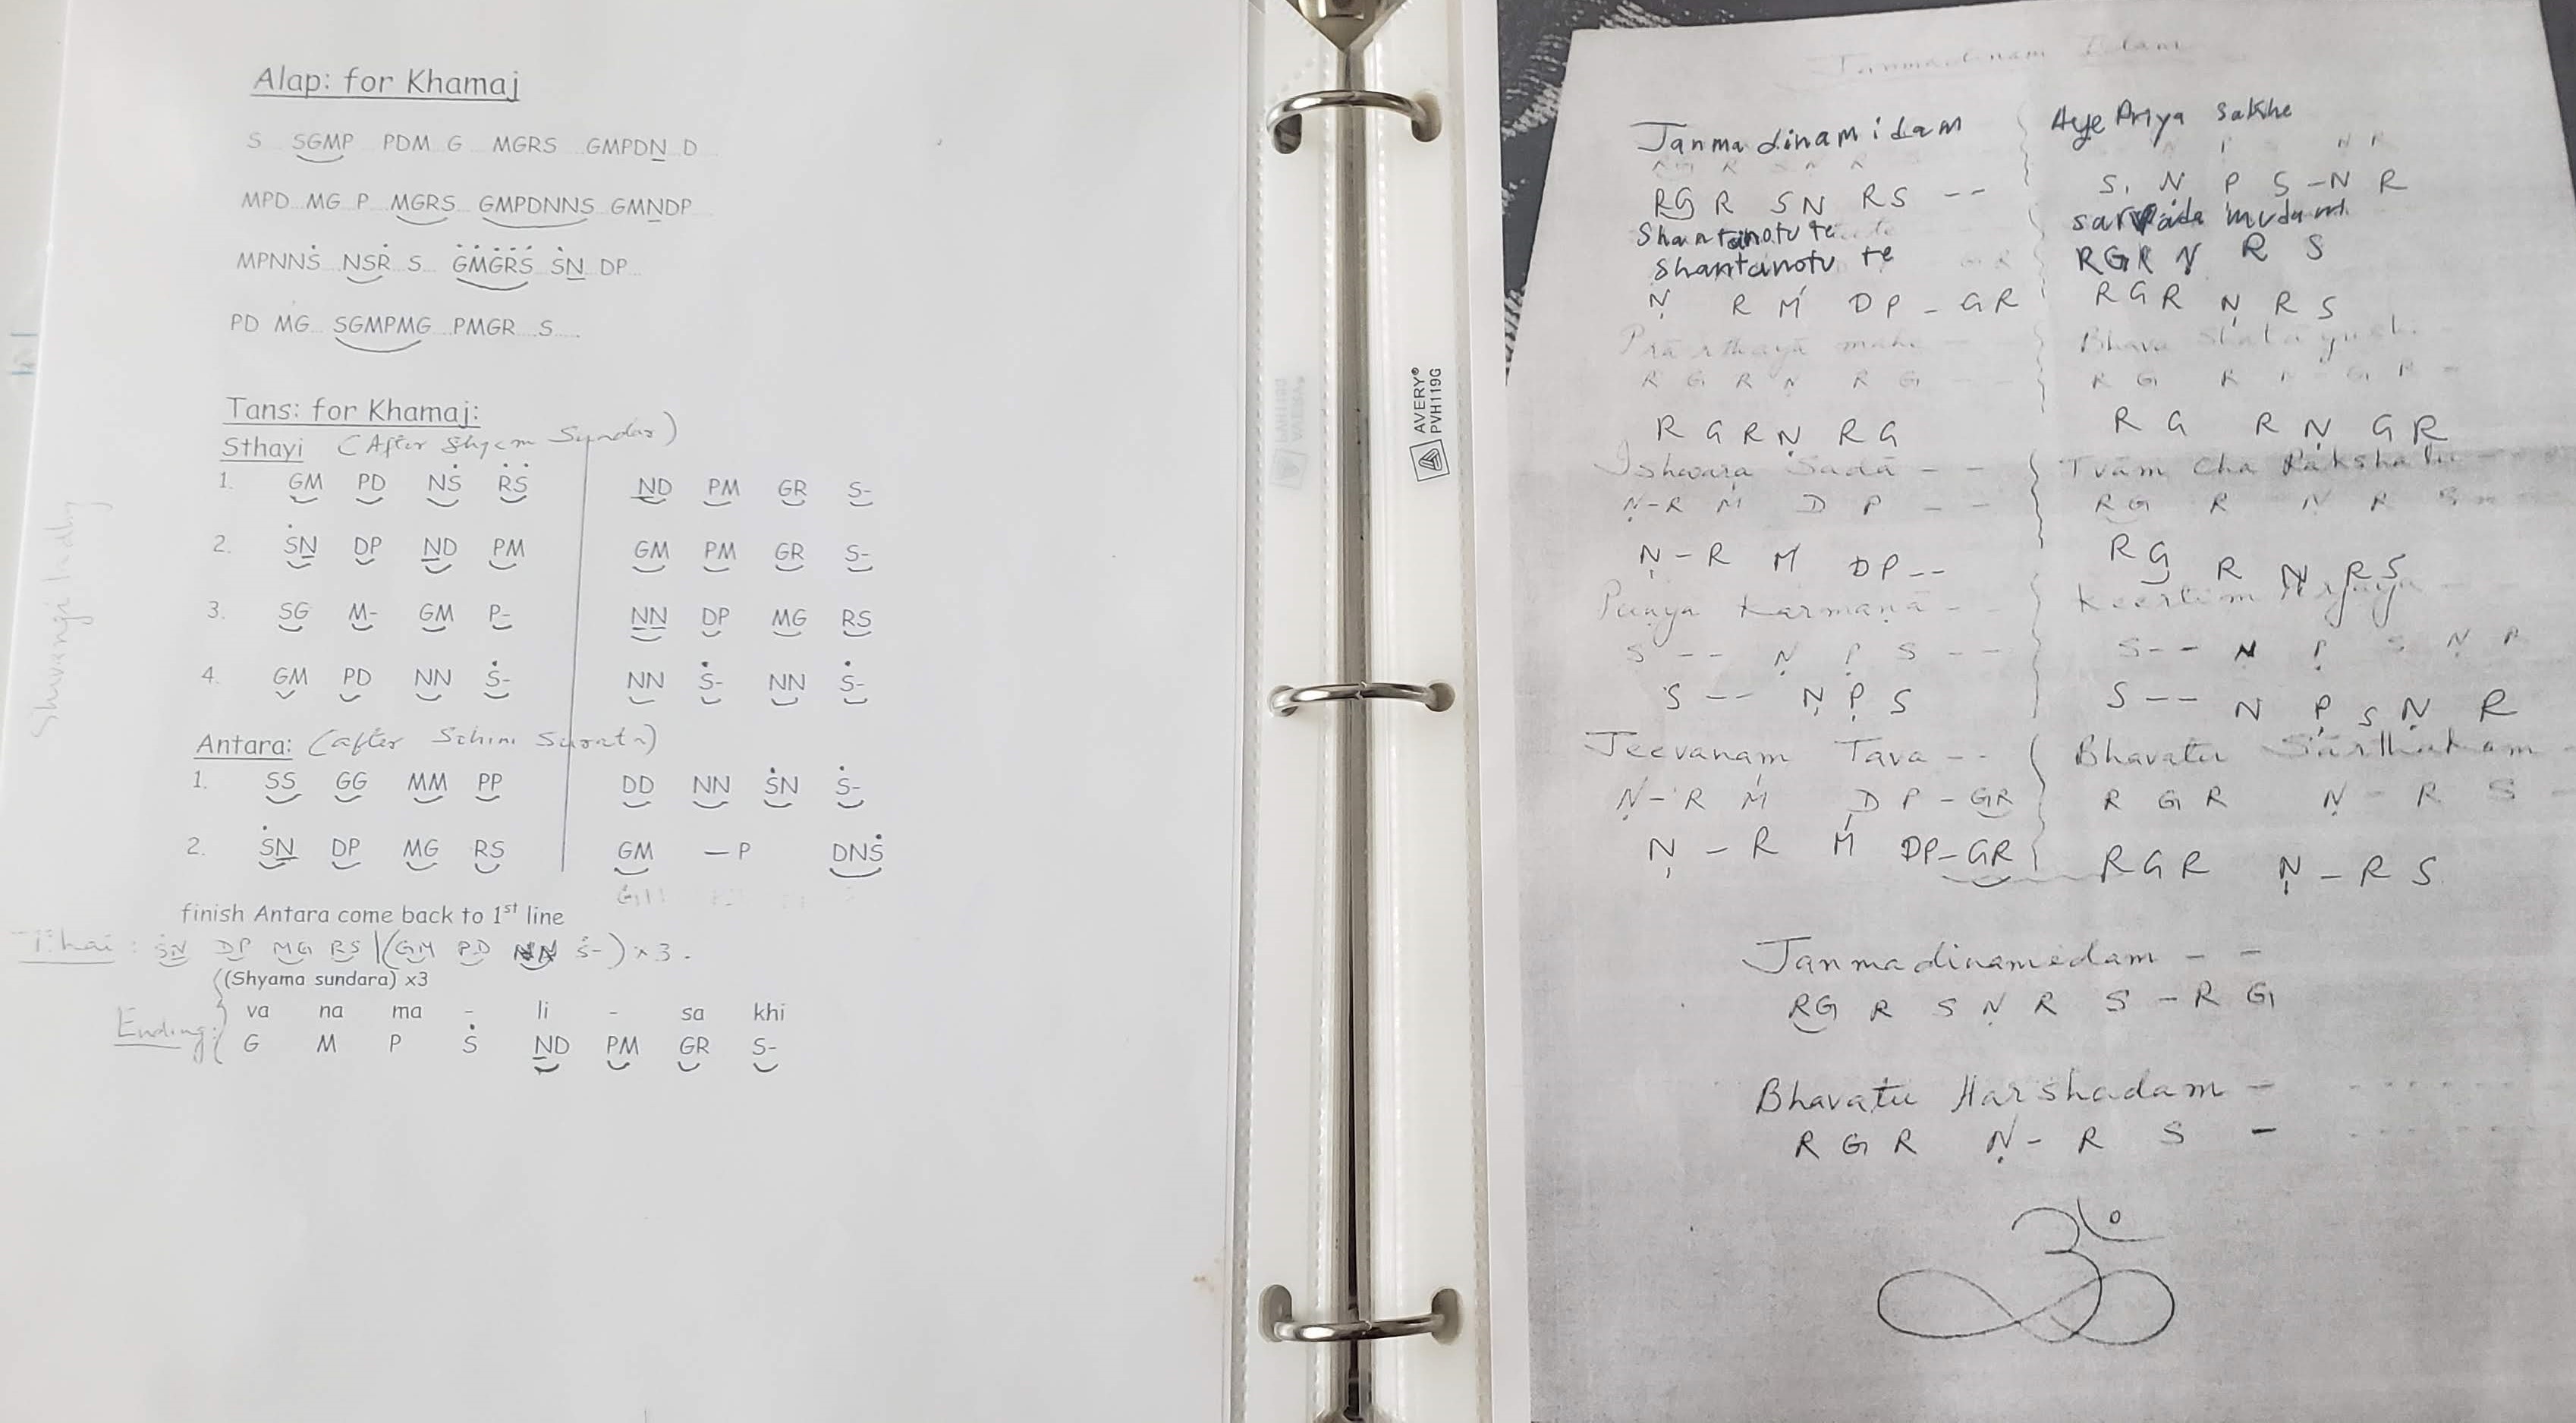 Alap: for Khamaj
S SGMP PDM G MGRS GMPDN̲ D
MPD MG P MGRS GMPDNNS GMN̲DP
MPNNṠ NSṘ S ĠṀĠṘṠ ṠN̲ DP
PD MG SGMPMG PMGR S
Tans: for Khamaj:
Sthayi (After Shyam Sundar)
1. GM PD NṠ ṘṠ N̲D PM GR S-
2. ṠN̲ DP N̲D PM GM PM GR S-
3. SG M- GM P- N̲N̲ DP MG RS
4. GM PD NN Ṡ- NN Ṡ- NN Ṡ-
Antara: (after Sohini Surata)
1. SS GG MM PP DD NN ṠN Ṡ-
2. ṠN̲ DP MG RS GM — P DNṠ
finish Antara come back to 1st line
Tihai: ṠN̲ DP MG RS | (GM PD NN Ṡ-) x3.
(Shyama sundara) x3
va na ma - li - sa khi
Ending: G M P Ṡ N̲D PM GR S-
AVERY®
PVH119G
Janmadinam Idam
Janmadinamidam Aye Priya Sakhe
RG R S Ṇ RS -- S. Ṇ P̣ S -Ṇ R
Shantanotu te sarvada mudam
Shantanotu te RGR Ṇ R S
Ṇ R Ḿ DP - GR RGR Ṇ R S
Prārthayā mahe - - Bhava Shatāyushi -
R G R Ṇ R G - - R G R Ṇ G R -
R G R Ṇ R G R G R Ṇ G R
Ishwara Sadā - - Tvām Cha Rakshatu - -
Ṇ-R Ḿ D P - - RG R Ṇ R S - -
Ṇ - R Ḿ DP -- RG R Ṇ RS
Punya Karmaṇā - - Keertim Arjaya - -
S -- Ṇ P̣ S -- S -- Ṇ P̣ S Ṇ R
S -- Ṇ P̣ S S -- Ṇ P̣ S Ṇ R
Jeevanam Tava -- Bhavatu Sārthakam -
Ṇ-R Ḿ D P - GR R G R Ṇ - R S -
Ṇ - R Ḿ DP-GR RGR Ṇ - R S
Janmadinamedam - -
RG R S Ṇ R S - R G
Bhavatu Harshadam -
R G R Ṇ - R S -
ॐ